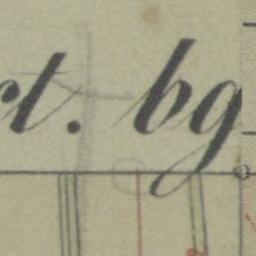 ct. bg